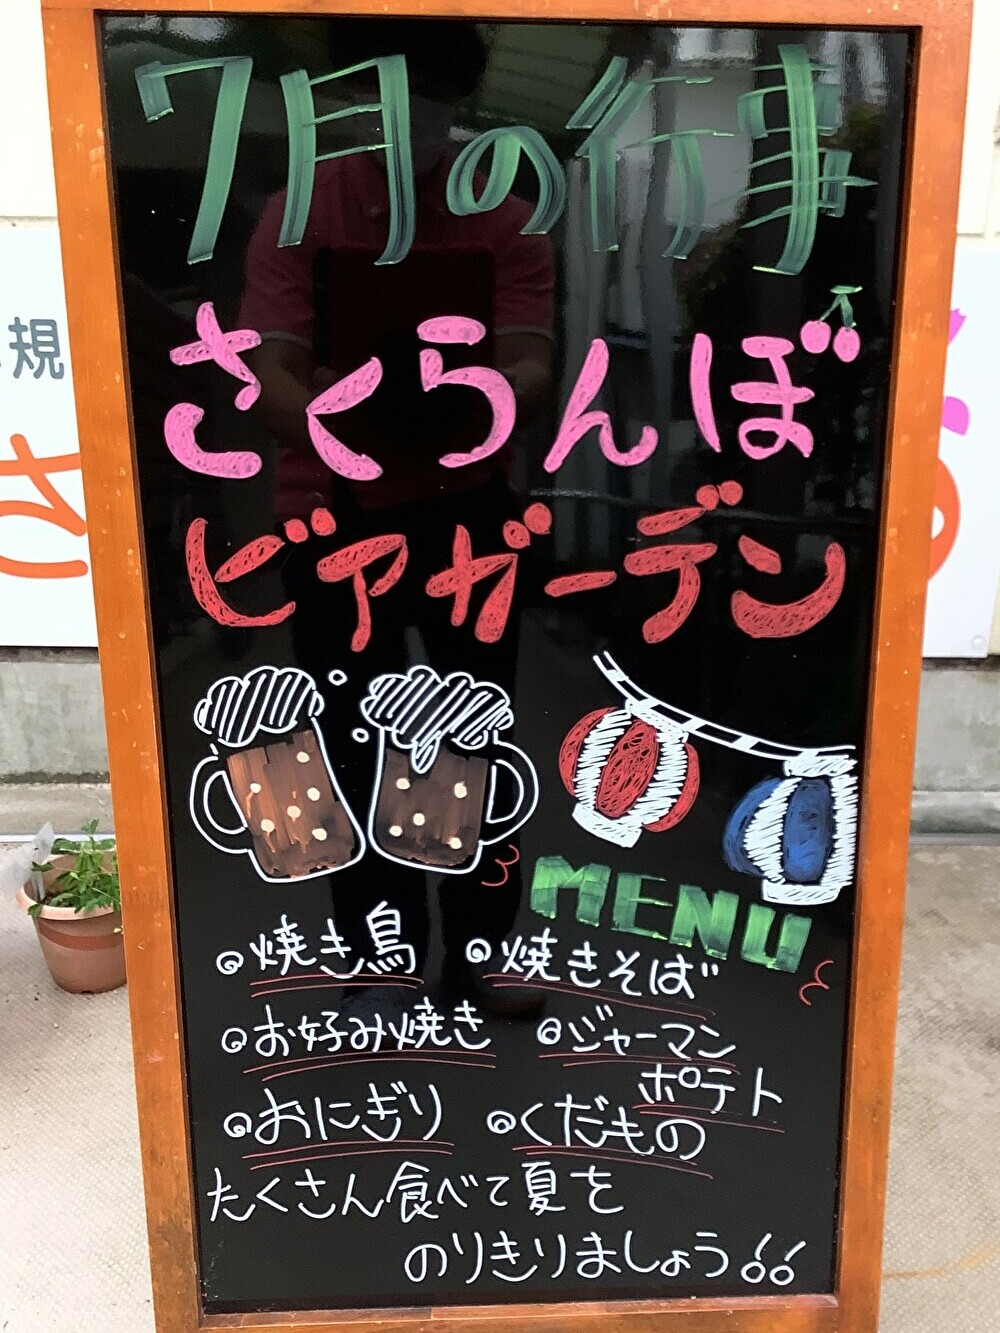 7月の行事
さくらんぼ
ビアガーデン
MENU
焼き鳥
焼きそば
お好み焼き
ジャーマン
ポテト
おにぎり
くだもの
たくさん食べて夏を
のりきりましょう!!
規